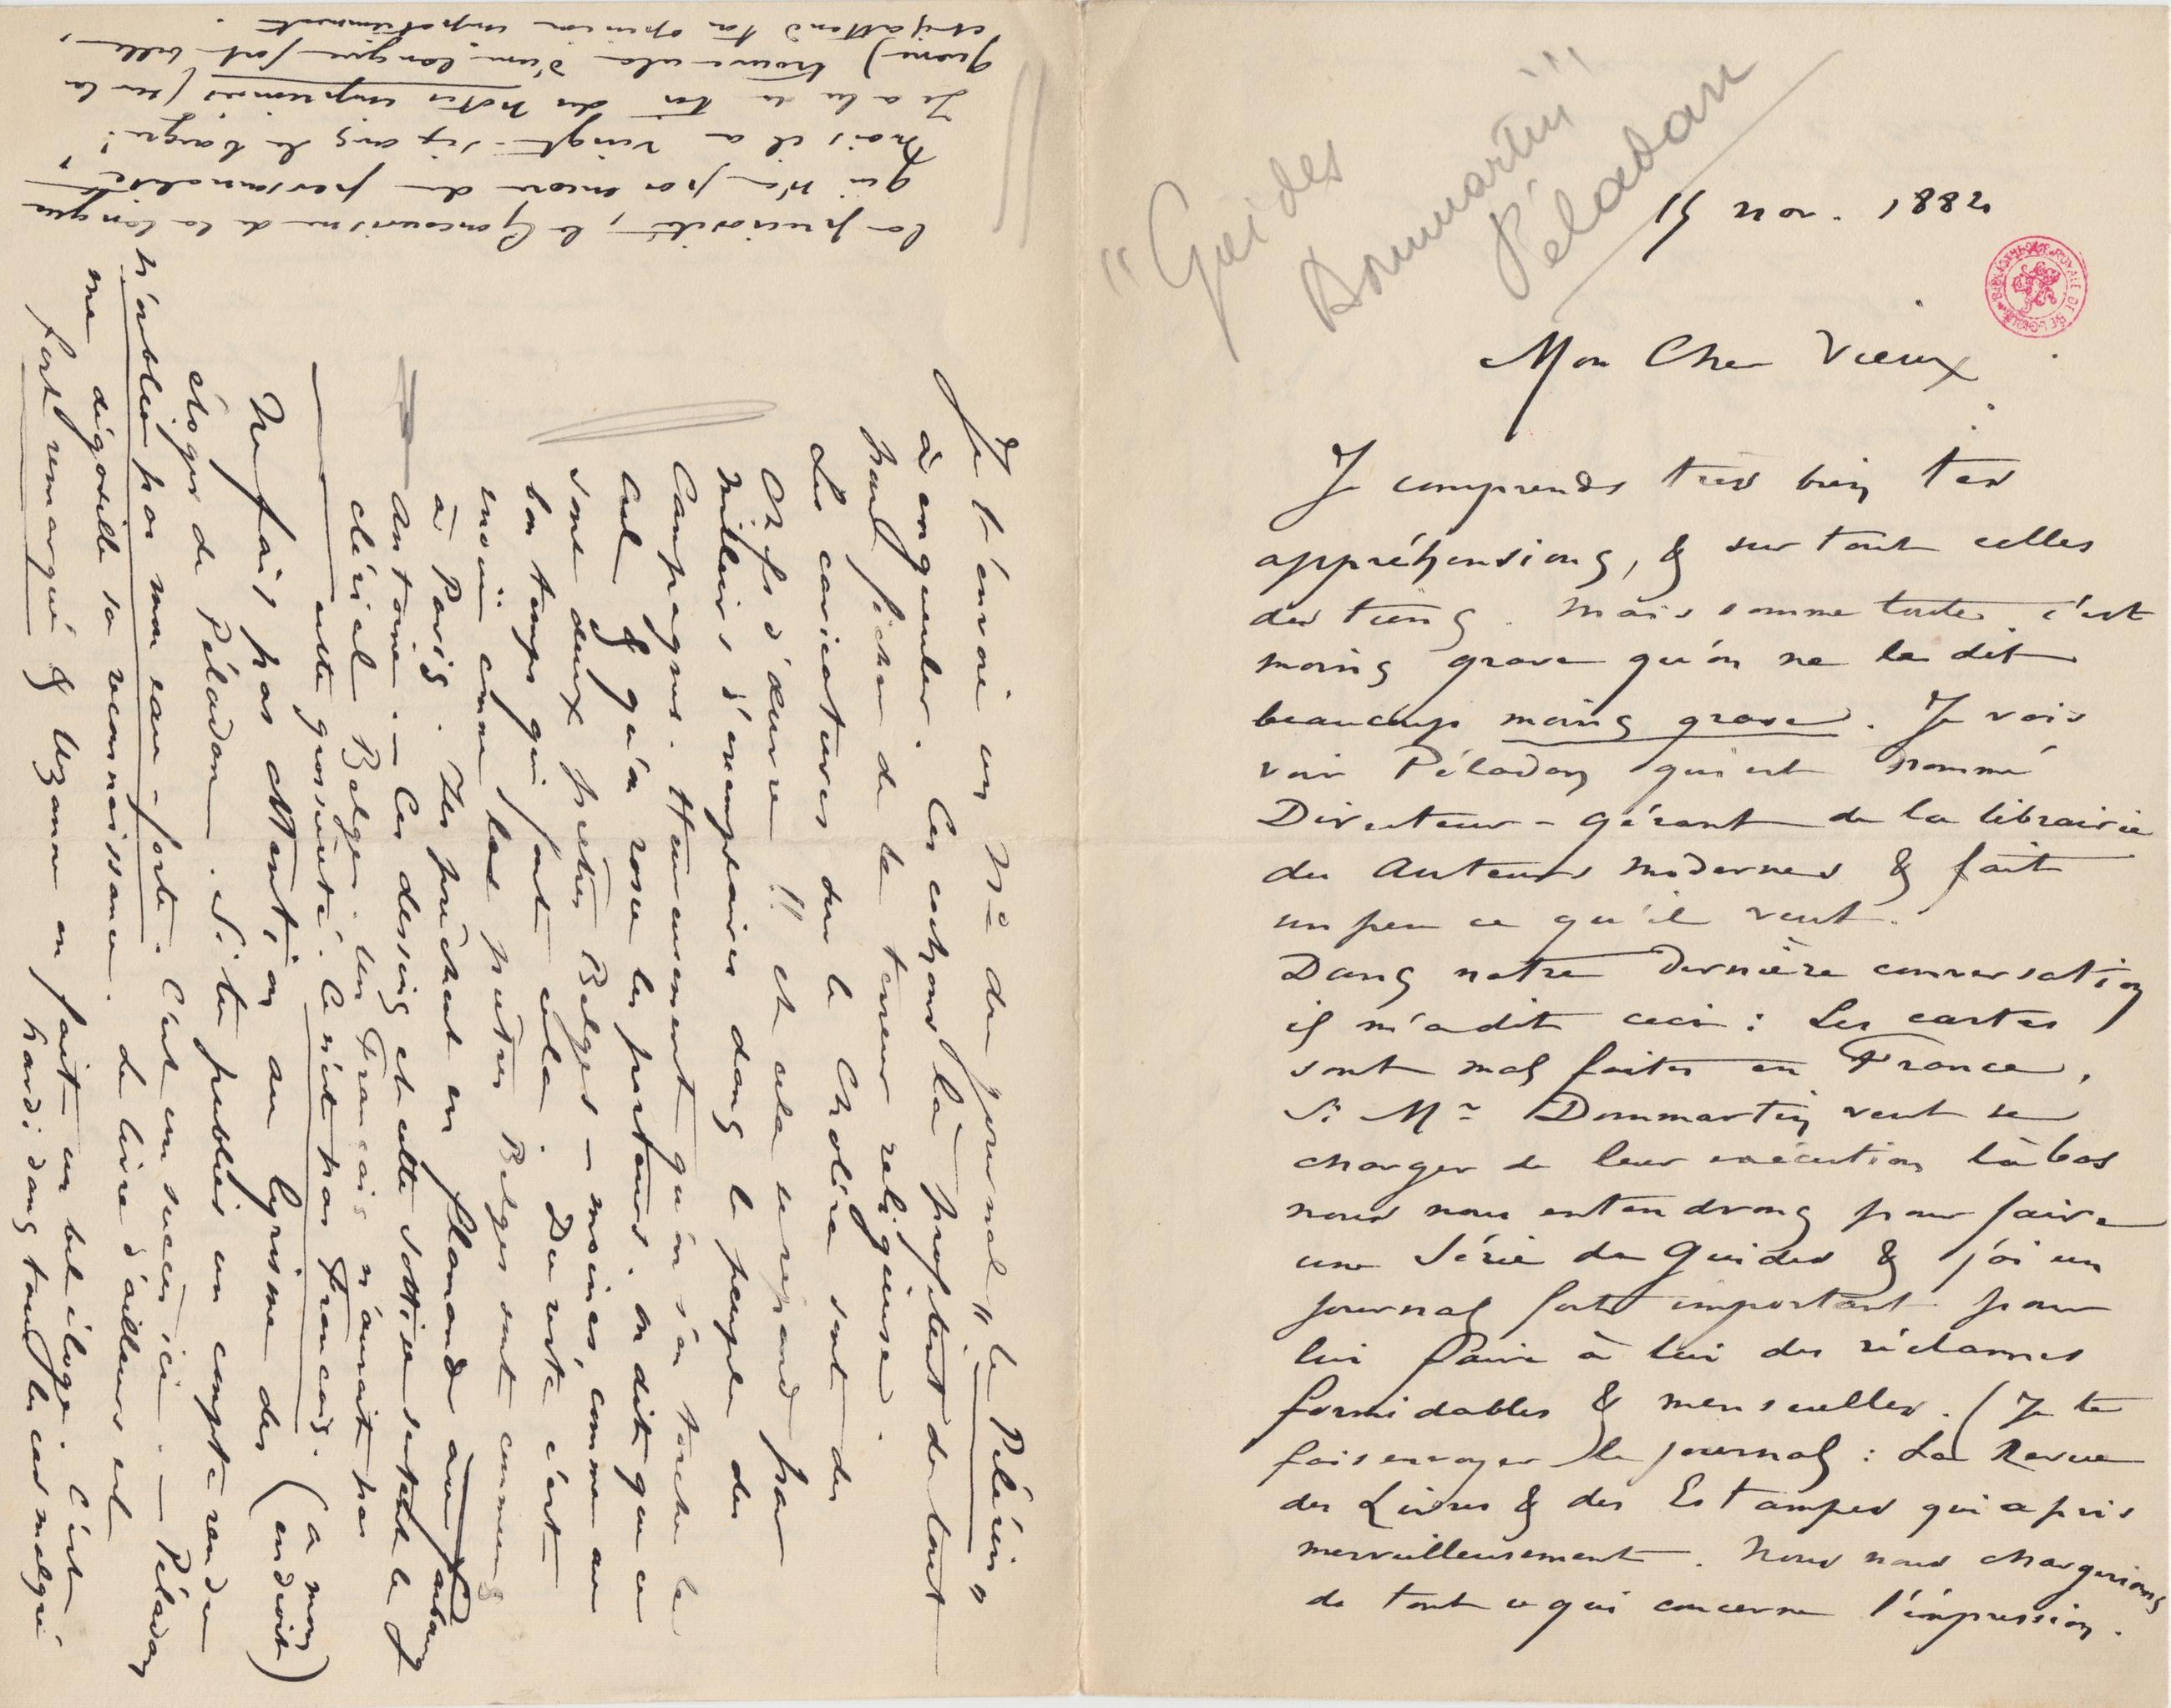 "Guides
Dommartin"
Péladan
15 nov. 1884
Mon Cher Vieux
Je comprends très bien tes
appréhensions, & surtout celles
des tiens. Mais somme toute c'est
moins grave qu'on ne le dit
beaucoup moins grave. Je vois
voir Péladan qui est nommé
Directeur-gérant de la librairie
des Auteurs modernes & fait
un peu ce qu'il veut.
Dans notre dernière conversation
il m'a dit ceci : Les cartes
sont mal faites en France,
Si Mr Dommartin veut se
charger de leur exécution là bas
nous nous entendrons pour faire
une Série de Guides & j'ai un
journal fort important pour
lui faire à lui des réclames
formidables & mensuelles. (Je te
fais envoyer le journal : La Revue
des Livres & des Estampes qui a pris
merveilleusement. Nous nous chargerions
de tout ce qui concerne l'impression.
Je t'envoie un No du journal "le Pélérin"
à engueuler. Ces cochons là profitent de tout
pour ficher de la terreur religieuse.
Les caricatures sur le Choléra sont des
Chefs d'œuvre !! et cela se répand par
milliers d'exemplaires dans le peuple des
Campagnes. Heureusement qu'on s'en torche le
cul & qu'on rosse les porteurs. On dit que ce
sont deux prêtres Belges – moines, comme au
bon temps qui font cela. Du reste c'est
inouï comme les prêtres Belges sont communs
à Paris. Ils prêchent en flamand au faubourg
Antoine. – Ces dessins et cette sottise sentent le
clérical Belge. Un Français n'aurait pas
cette grossièreté. Ce n'est pas Français.
Ne fais pas attention au lyrisme des (à mon
éloges de Péladan. Si tu publies un compte rendu endroit)
n'oublie pas mon eau-forte. C'est un succès ici. – Péladan
me dégoville sa reconnaissance. Le livre d'ailleurs est
fort remarqué & Uzanne en fait un bel éloge. C'est
hardi dans tous les cas malgré
la préciosité, le Goncourisme de la langue
qui n'a pas encore de personnalité,
Mais il a vingt-six ans le bougre!
Je a lu de toi des notes imprimées (sur la
guerre) trouve cela d'une langue fort belle,
et j'attend ton opinion impatiemment.